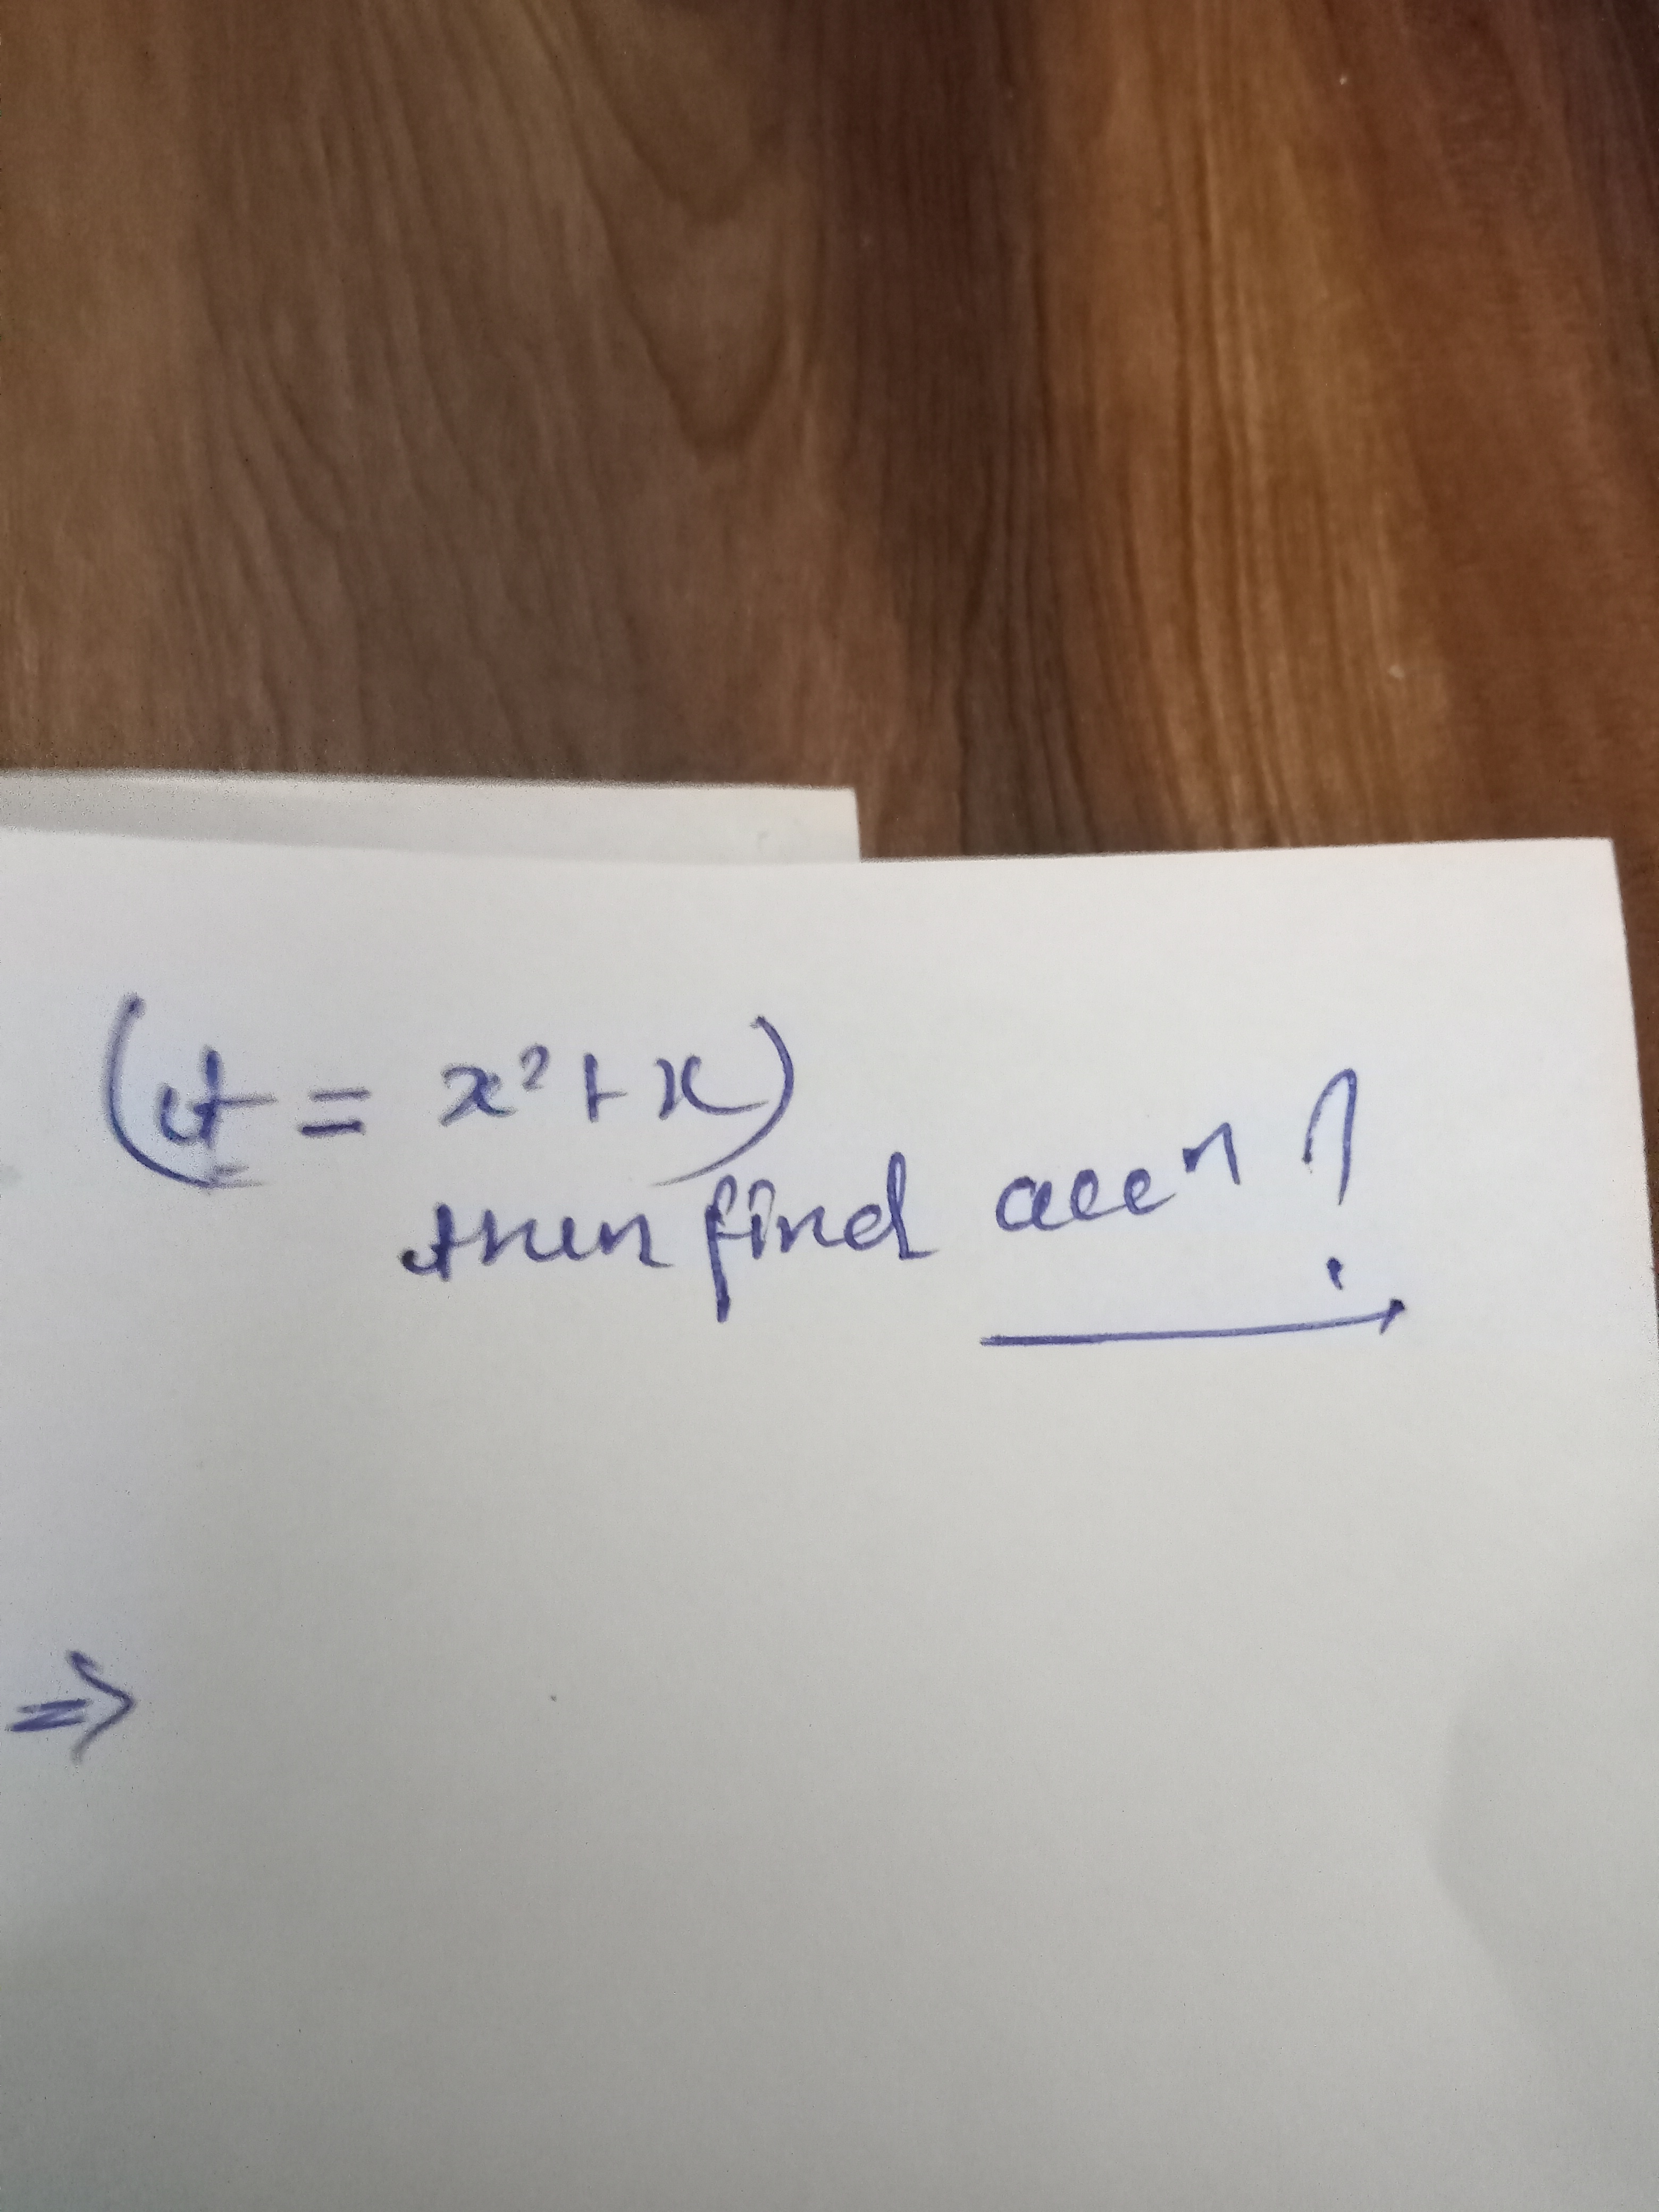 (t = x² + x)
then find accⁿ ?
⇒